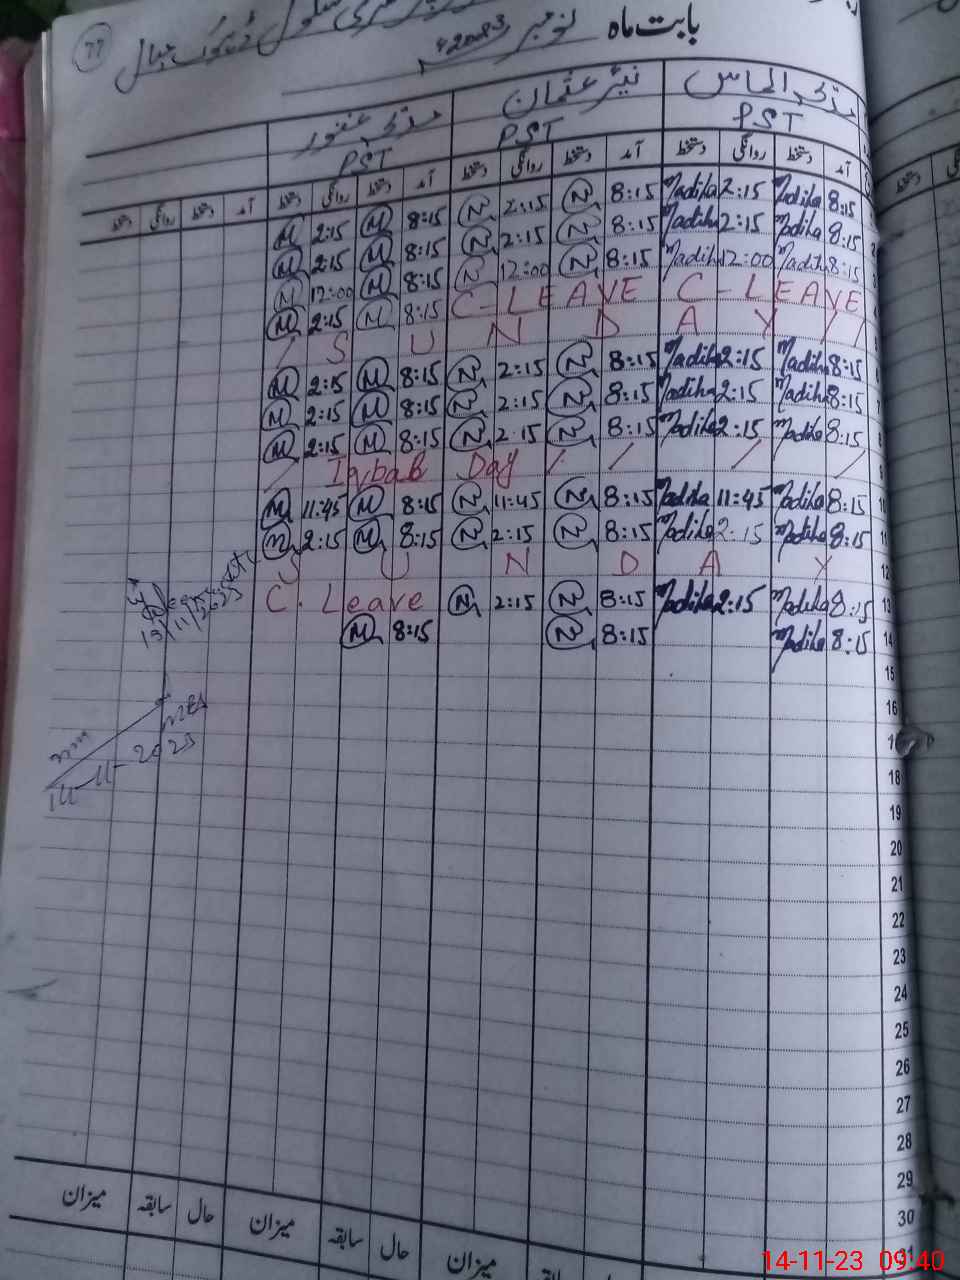 77
بابت ماہ نومبر 2023ء
مدیحہ الماس نیئر عثمان
PST PST PST
آمد دستخط روانگی دستخط آمد دستخط روانگی دستخط آمد دستخط روانگی دستخط آمد دستخط روانگی دستخط
M 2:15 M 8:15 N 2:15 N 8:15 Madiha 2:15 Madiha 8:15
M 2:15 M 8:15 N 2:15 N 8:15 Madiha 2:15 Madiha 8:15 2
M 12:00 M 8:15 N 12:00 N 8:15 Madiha 12:00 Madiha 8:15 3
M 2:15 M 8:15 C-LEAVE C-LEAVE 4
/ S U N D A Y / / 5
M 2:15 M 8:15 N 2:15 N 8:15 Madiha 2:15 Madiha 8:15 6
M 2:15 M 8:15 N 2:15 N 8:15 Madiha 2:15 Madiha 8:15 7
M 2:15 M 8:15 N 2:15 N 8:15 Madiha 2:15 Madiha 8:15 8
/ Iqbal Day / / / / 9
M 11:45 M 8:15 N 11:45 N 8:15 Madiha 11:45 Madiha 8:15 10
M 2:15 M 8:15 N 2:15 N 8:15 Madiha 2:15 Madiha 8:15 11
S U N D A Y 12
C. Leave N 2:15 N 8:15 Madiha 2:15 Madiha 8:15 13
M 8:15 N 8:15 Madiha 8:15 14
15
16
18
14-11-2023
19
20
21
22
23
24
25
26
27
28
29
30
31
میزان سابقہ حال میزان سابقہ حال میزان
14-11-23 09:40